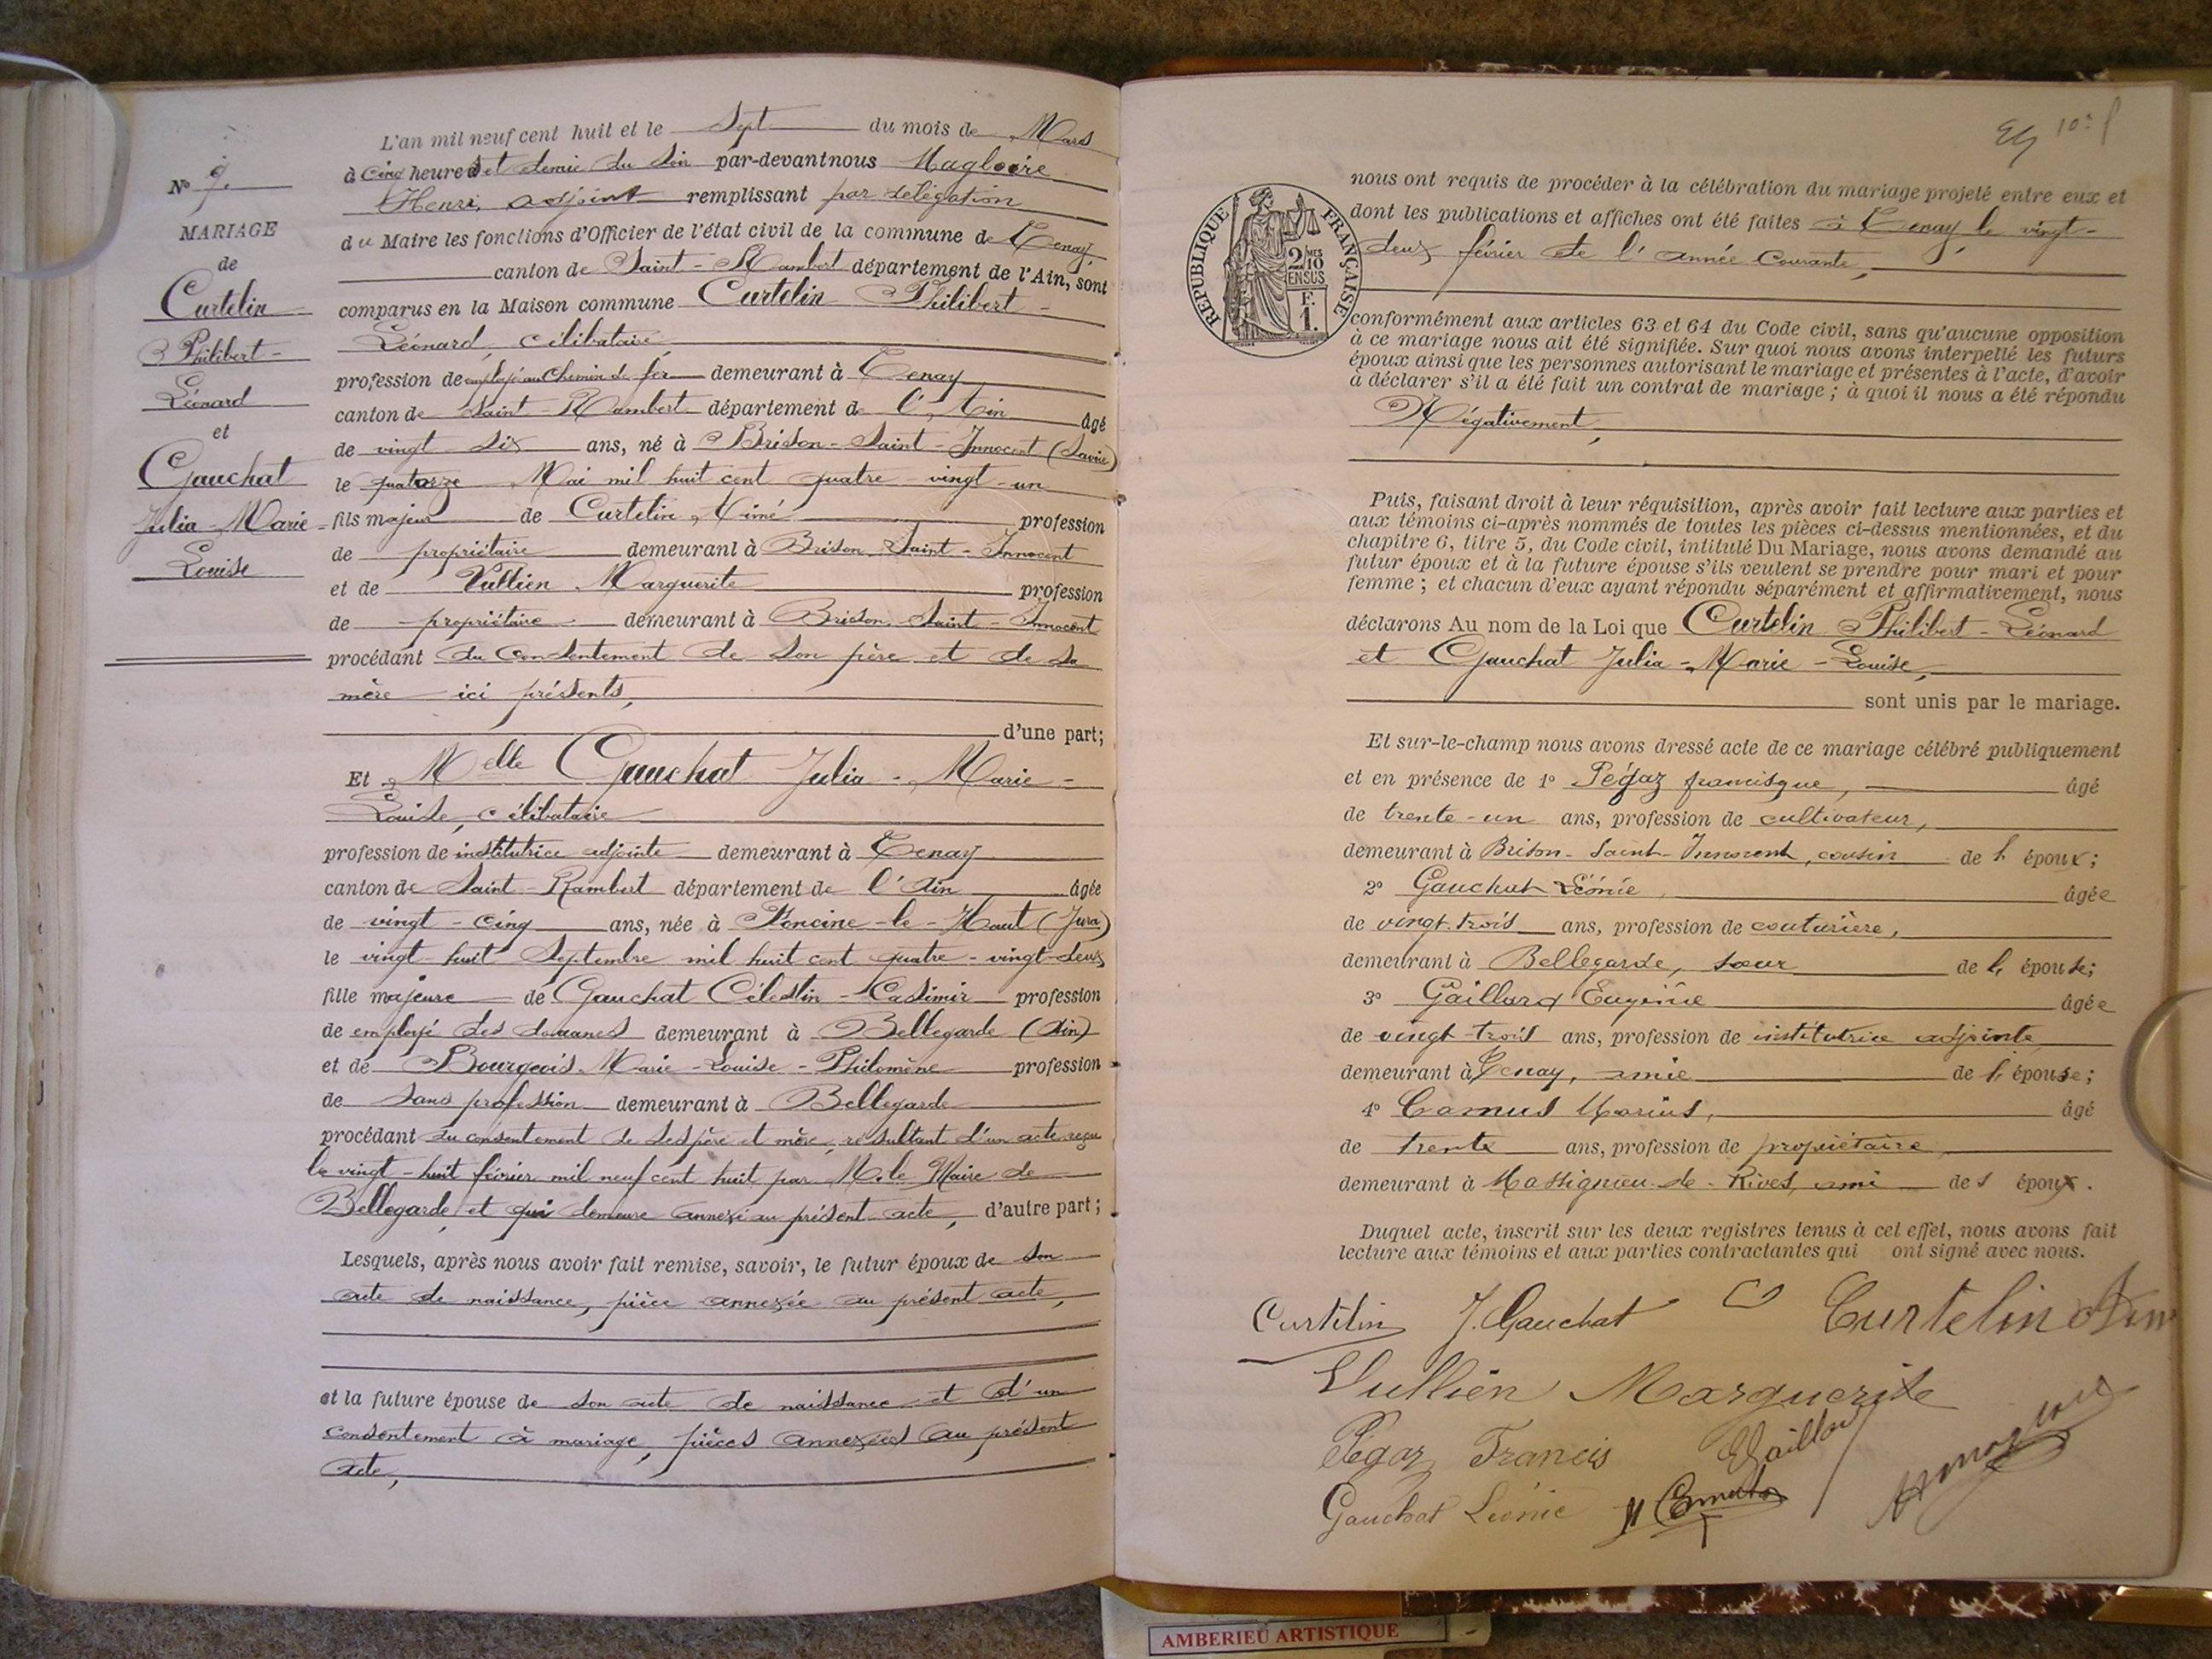 N° 9.
MARIAGE
de
Curtelin
Philibert-
Léonard
et
Gauchat
Julia-Marie-
Louise
L'an mil neuf cent huit et le Sept du mois de Mars
à cinq heures et demie du soir par-devant nous Magloire
Henri, adjoint remplissant par délégation
du Maire les fonctions d'Officier de l'état civil de la commune de Tenay,
canton de Saint-Rambert département de l'Ain, sont
comparus en la Maison commune Curtelin Philibert-
Léonard, célibataire,
profession de employé au Chemin de fer demeurant à Tenay
canton de Saint-Rambert département de l'Ain âgé
de vingt six ans, né à Brison-Saint-Innocent (Savoie)
le quatorze Mai mil huit cent quatre-vingt-un
fils majeur de Curtelin Aimé profession
de propriétaire demeurant à Brison-Saint-Innocent
et de Vullien Marguerite profession
de propriétaire demeurant à Brison-Saint-Innocent
procédant du consentement de son père et de sa
mère ici présents,
d'une part;
Et Melle Gauchat Julia-Marie-
Louise, célibataire
profession de institutrice adjointe demeurant à Tenay
canton de Saint-Rambert département de l'Ain âgée
de vingt-cinq ans, née à Foncine-le-Haut (Jura)
le vingt-huit Septembre mil huit cent quatre-vingt-deux
fille majeure de Gauchat Célestin-Casimir profession
de employé des douanes demeurant à Bellegarde (Ain)
et de Bourgeois Marie-Louise-Philomène profession
de sans profession demeurant à Bellegarde
procédant du consentement de ses père et mère, résultant d'un acte reçu
le vingt-huit février mil neuf cent huit par M. le Maire de
Bellegarde, et qui demeure annexé au présent acte, d'autre part;
Lesquels, après nous avoir fait remise, savoir, le futur époux de son
acte de naissance, pièce annexée au présent acte,
et la future épouse de son acte de naissance et d'un
consentement à mariage, pièces annexées au présent
acte,
10e
RÉPUBLIQUE FRANÇAISE
2/10
MES
EN SUS
F.
1.
nous ont requis de procéder à la célébration du mariage projeté entre eux et
dont les publications et affiches ont été faites à Tenay le vingt-
deux février de l'année courante,
conformément aux articles 63 et 64 du Code civil, sans qu'aucune opposition
à ce mariage nous ait été signifiée. Sur quoi nous avons interpellé les futurs
époux ainsi que les personnes autorisant le mariage et présentes à l'acte, d'avoir
à déclarer s'il a été fait un contrat de mariage; à quoi il nous a été répondu
Négativement,
Puis, faisant droit à leur réquisition, après avoir fait lecture aux parties et
aux témoins ci-après nommés de toutes les pièces ci-dessus mentionnées, et du
chapitre 6, titre 5, du Code civil, intitulé Du Mariage, nous avons demandé au
futur époux et à la future épouse s'ils veulent se prendre pour mari et pour
femme; et chacun d'eux ayant répondu séparément et affirmativement, nous
déclarons Au nom de la Loi que Curtelin Philibert-Léonard
et Gauchat Julia-Marie-Louise,
sont unis par le mariage.
Et sur-le-champ nous avons dressé acte de ce mariage célébré publiquement
et en présence de 1° Pégaz francisque, âgé
de trente-un ans, profession de cultivateur,
demeurant à Brison-Saint-Innocent, cousin de l'époux;
2° Gauchat Léonie, âgée
de vingt-trois ans, profession de couturière,
demeurant à Bellegarde, soeur de l'épouse;
3° Gaillard Eugénie âgée
de vingt-trois ans, profession de institutrice adjointe
demeurant à Tenay, amie de l'épouse;
4° Camus Marius, âgé
de trente ans, profession de propriétaire
demeurant à Massignieu-de-Rives, ami des époux.
Duquel acte, inscrit sur les deux registres tenus à cet effet, nous avons fait
lecture aux témoins et aux parties contractantes qui ont signé avec nous.
Curtelin J. Gauchat Curtelin
Vullien Marguerite
Pégaz Francis E Gaillard
Gauchat Léonie M Camus
AMBERIEU ARTISTIQUE